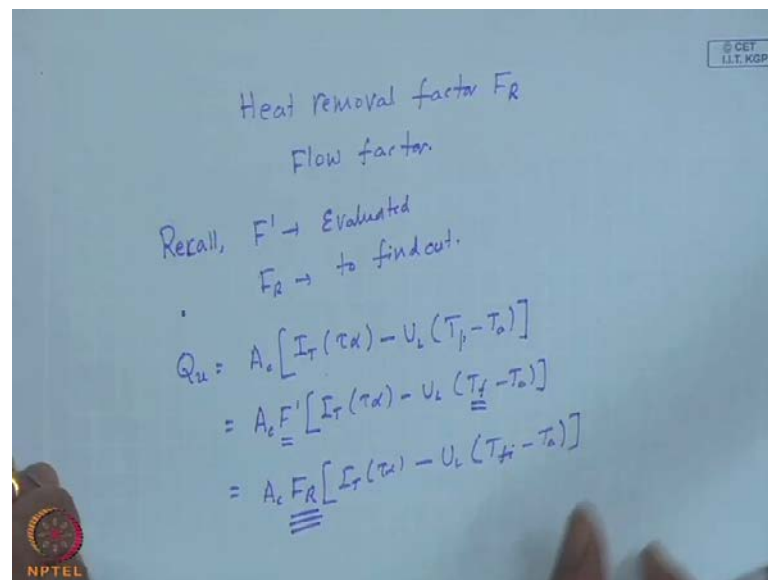 © CET
I.I.T. KGP
Heat removal factor F_R
Flow factor.
Recall, F' → Evaluated
F_R → to find out.
Q_u = A_c [I_T (τα) - U_L (T_p - T_a)]
= A_c F' [I_T (τα) - U_L (T_f - T_a)]
= A_c F_R [I_T (τα) - U_L (T_fi - T_a)]
NPTEL